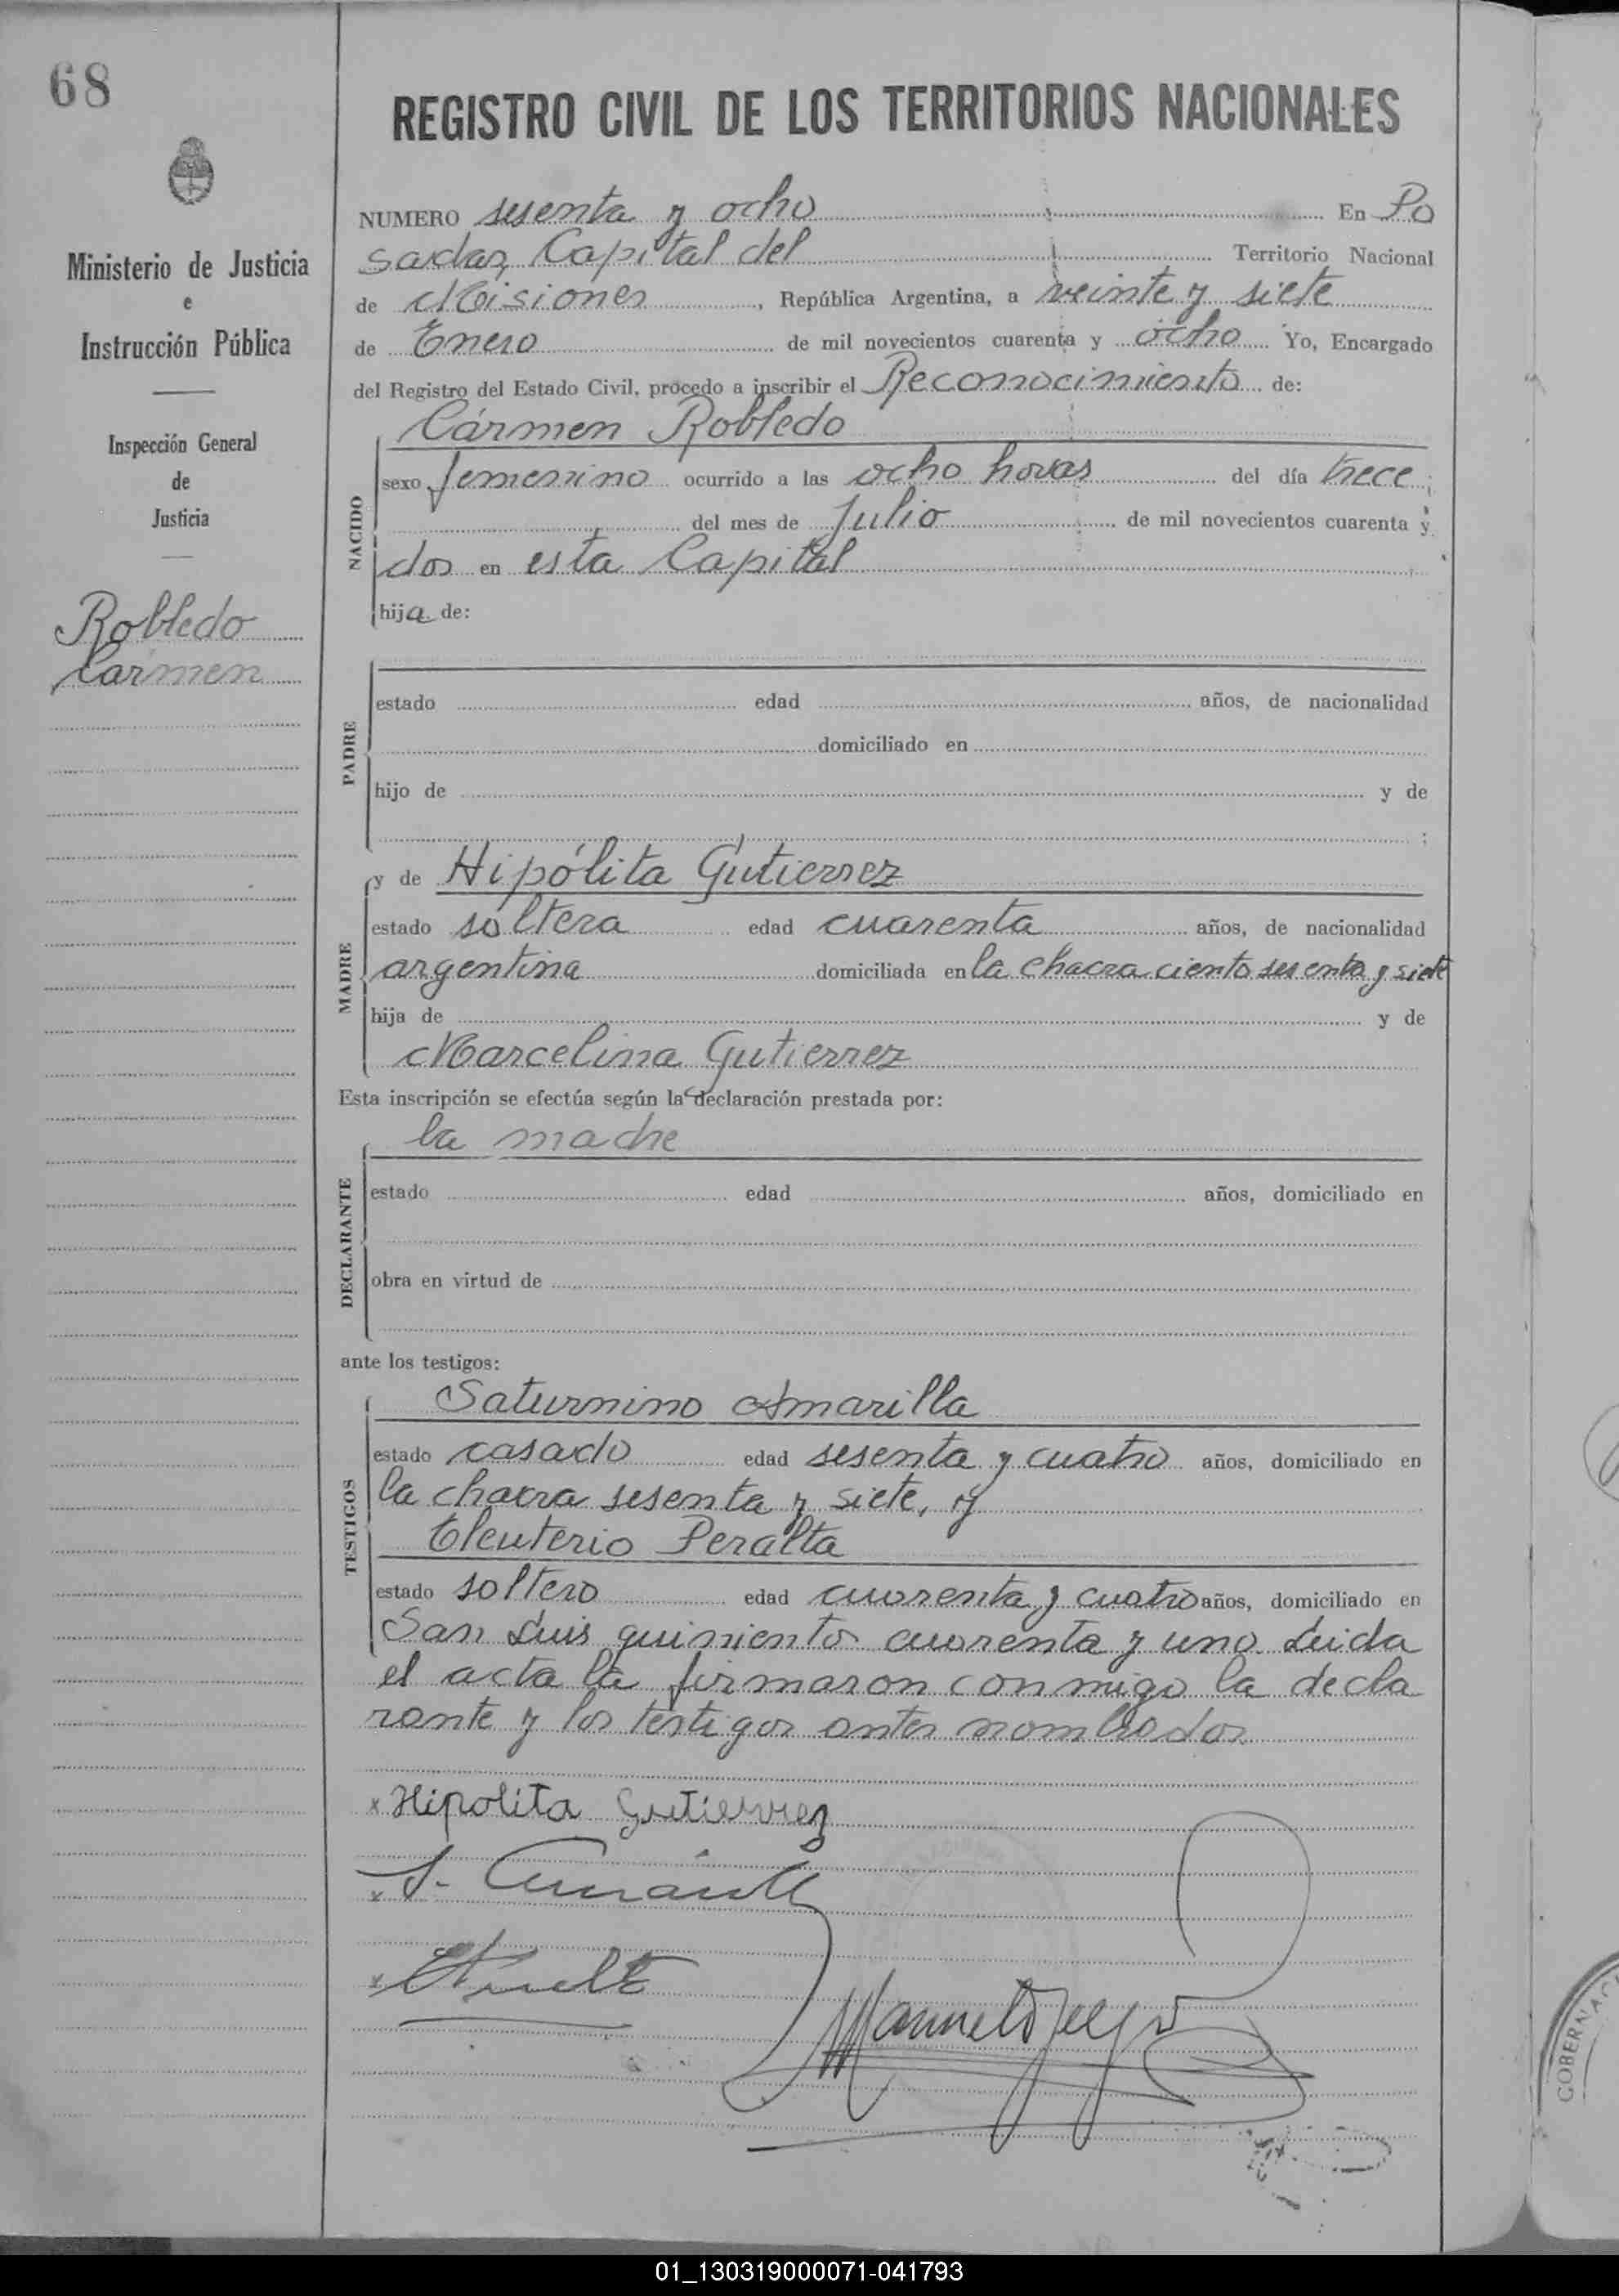 68
REGISTRO CIVIL DE LOS TERRITORIOS NACIONALES
Ministerio de Justicia
e
Instrucción Pública
Inspección General
de
Justicia
Robledo
Carmen
NUMERO sesenta y ocho En Po
sadas, Capital del Territorio Nacional
de Misiones, República Argentina, a veinte y siete
de Enero de mil novecientos cuarenta y ocho Yo, Encargado
del Registro del Estado Civil, procedo a inscribir el Reconocimiento de:
Cármen Robledo
NACIDO
sexo femenino ocurrido a las ocho horas del día trece
del mes de Julio de mil novecientos cuarenta y
dos en esta Capital
hija de:
PADRE
estado edad años, de nacionalidad
domiciliado en
hijo de y de
;
MADRE
y de Hipólita Gutierrez
estado soltera edad cuarenta años, de nacionalidad
argentina domiciliada en la chacra ciento sesenta y siete
hija de y de
Marcelina Gutierrez
Esta inscripción se efectúa según la declaración prestada por:
la madre
DECLARANTE
estado edad años, domiciliado en
obra en virtud de
ante los testigos:
TESTIGOS
Saturnino Amarilla
estado casado edad sesenta y cuatro años, domiciliado en
la chacra sesenta y siete, y
Eleuterio Peralta
estado soltero edad cuarenta y cuatro años, domiciliado en
San Luis quinientos cuarenta y uno. Leida
el acta la firmaron conmigo la decla
rante y los testigos antes nombrados
x Hipolita Gutierrez
x S. Amarilla
x
Manuel
GOBERNAC
01_130319000071-041793